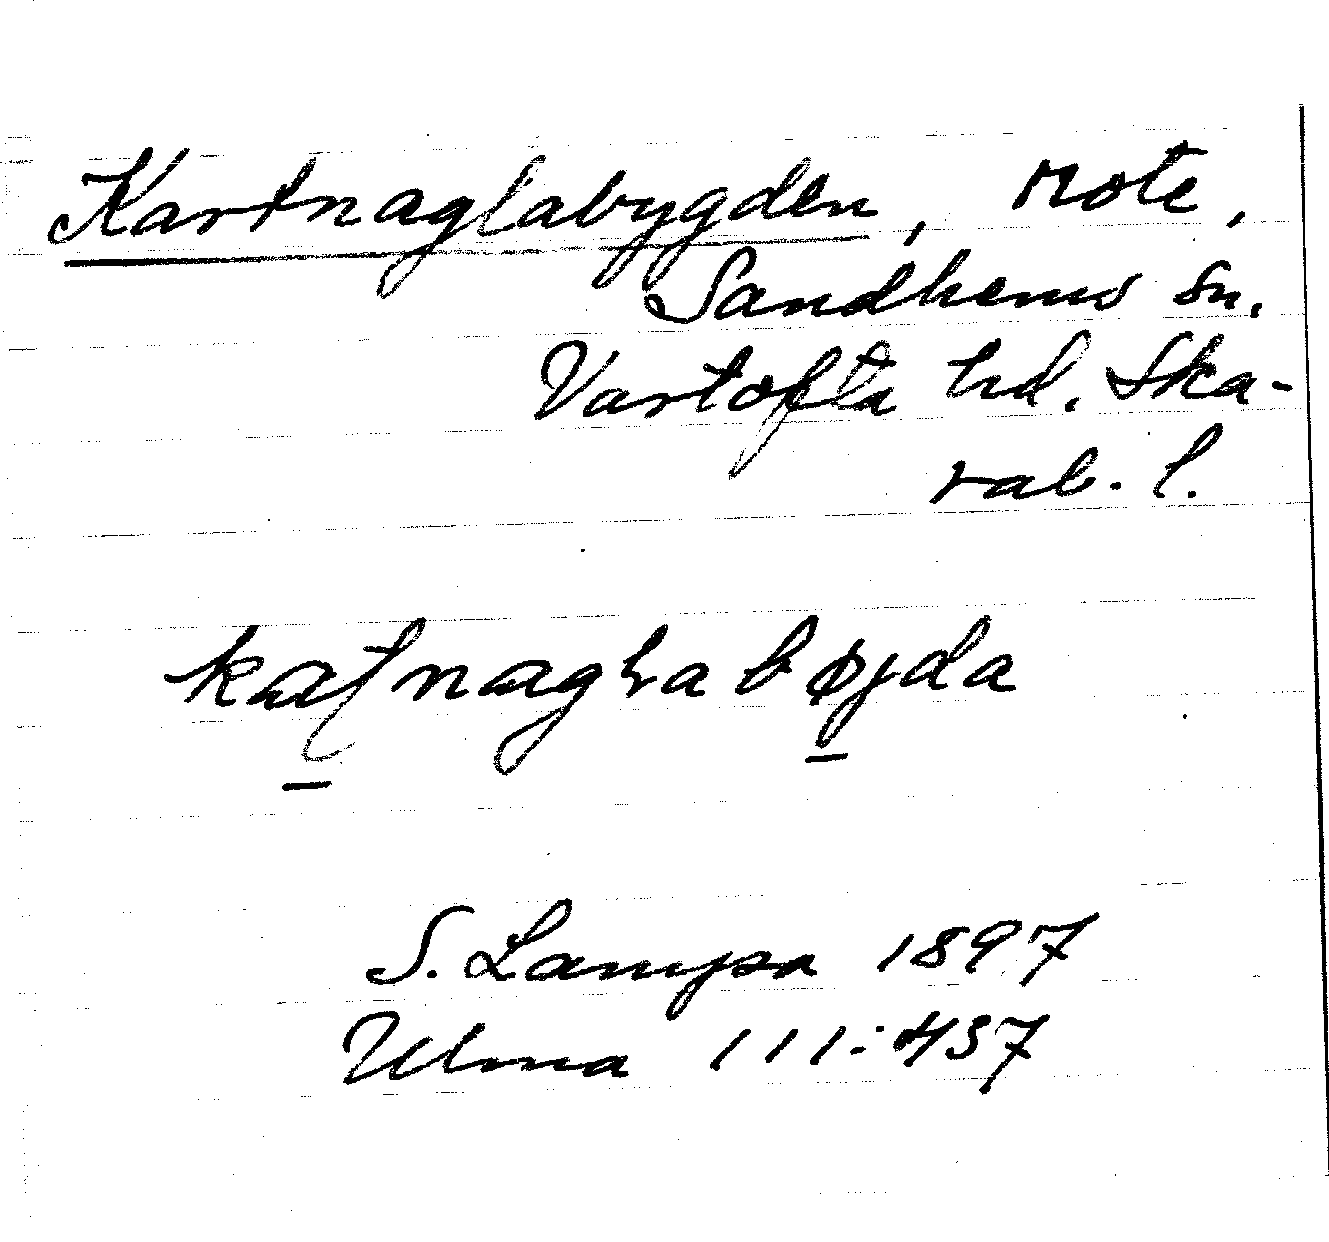 Kartnaglabygden, rote,
Sandhems sn.
Vartofta hd. Ska-
rab. l.
kaʈnagla bøjda
S. Lampa 1897
Ulma 111:457